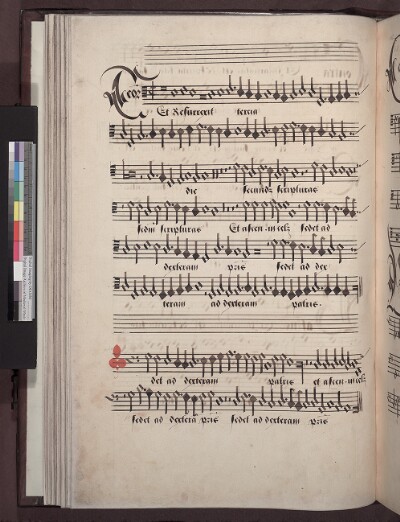 Et Resurrexit tercia
die secundū scripturas
scdm scripturas Et ascen in cel sedet ad
dexteram pris sedet ad dex
teram ad dexteram patris.
det ad dexteram patris et ascen in cel
sedet ad dexterā pris sedet ad dexteram pris